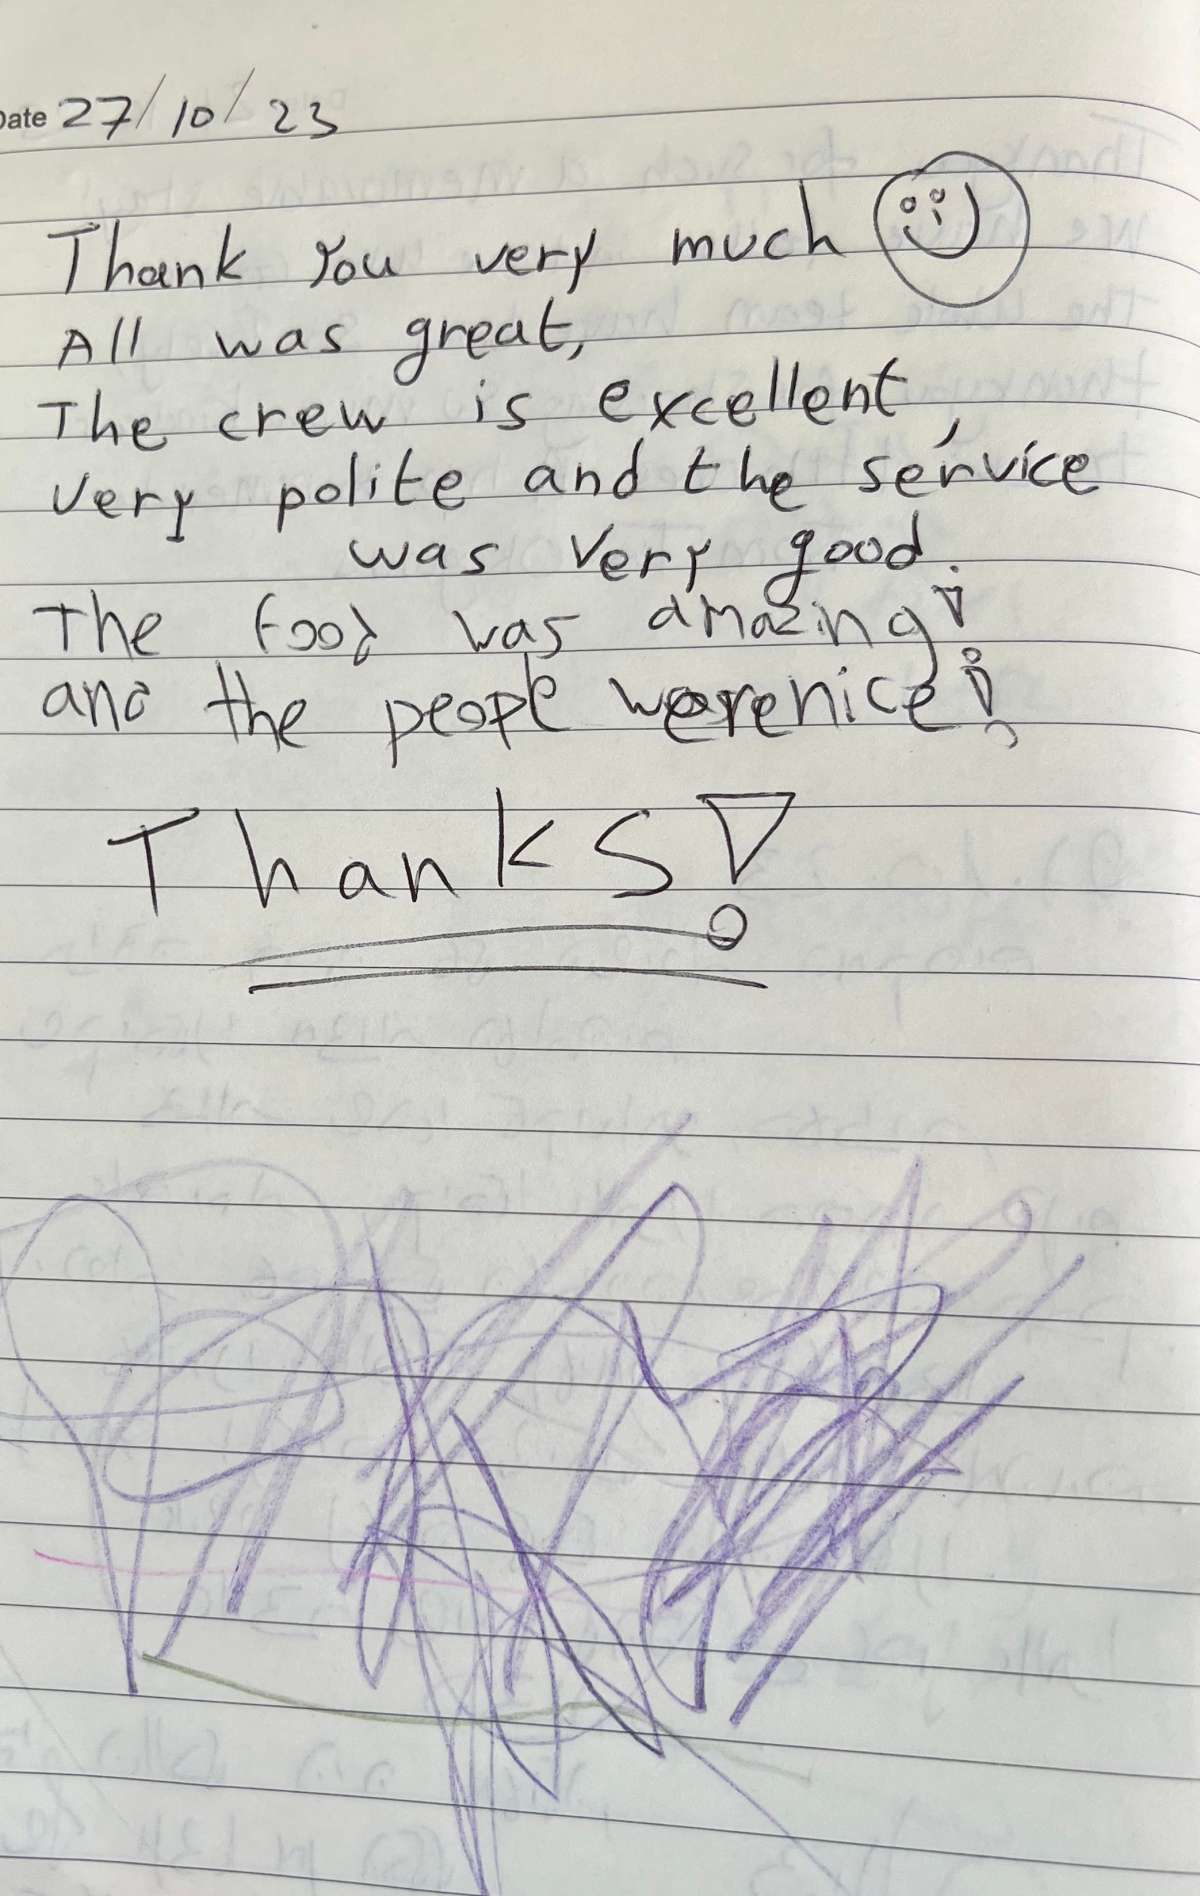 Date 27/10/23
Thank you very much
All was great,
The crew is excellent,
very polite and the service
was very good.
The food was amazing!
and the people were nice!
Thanks!